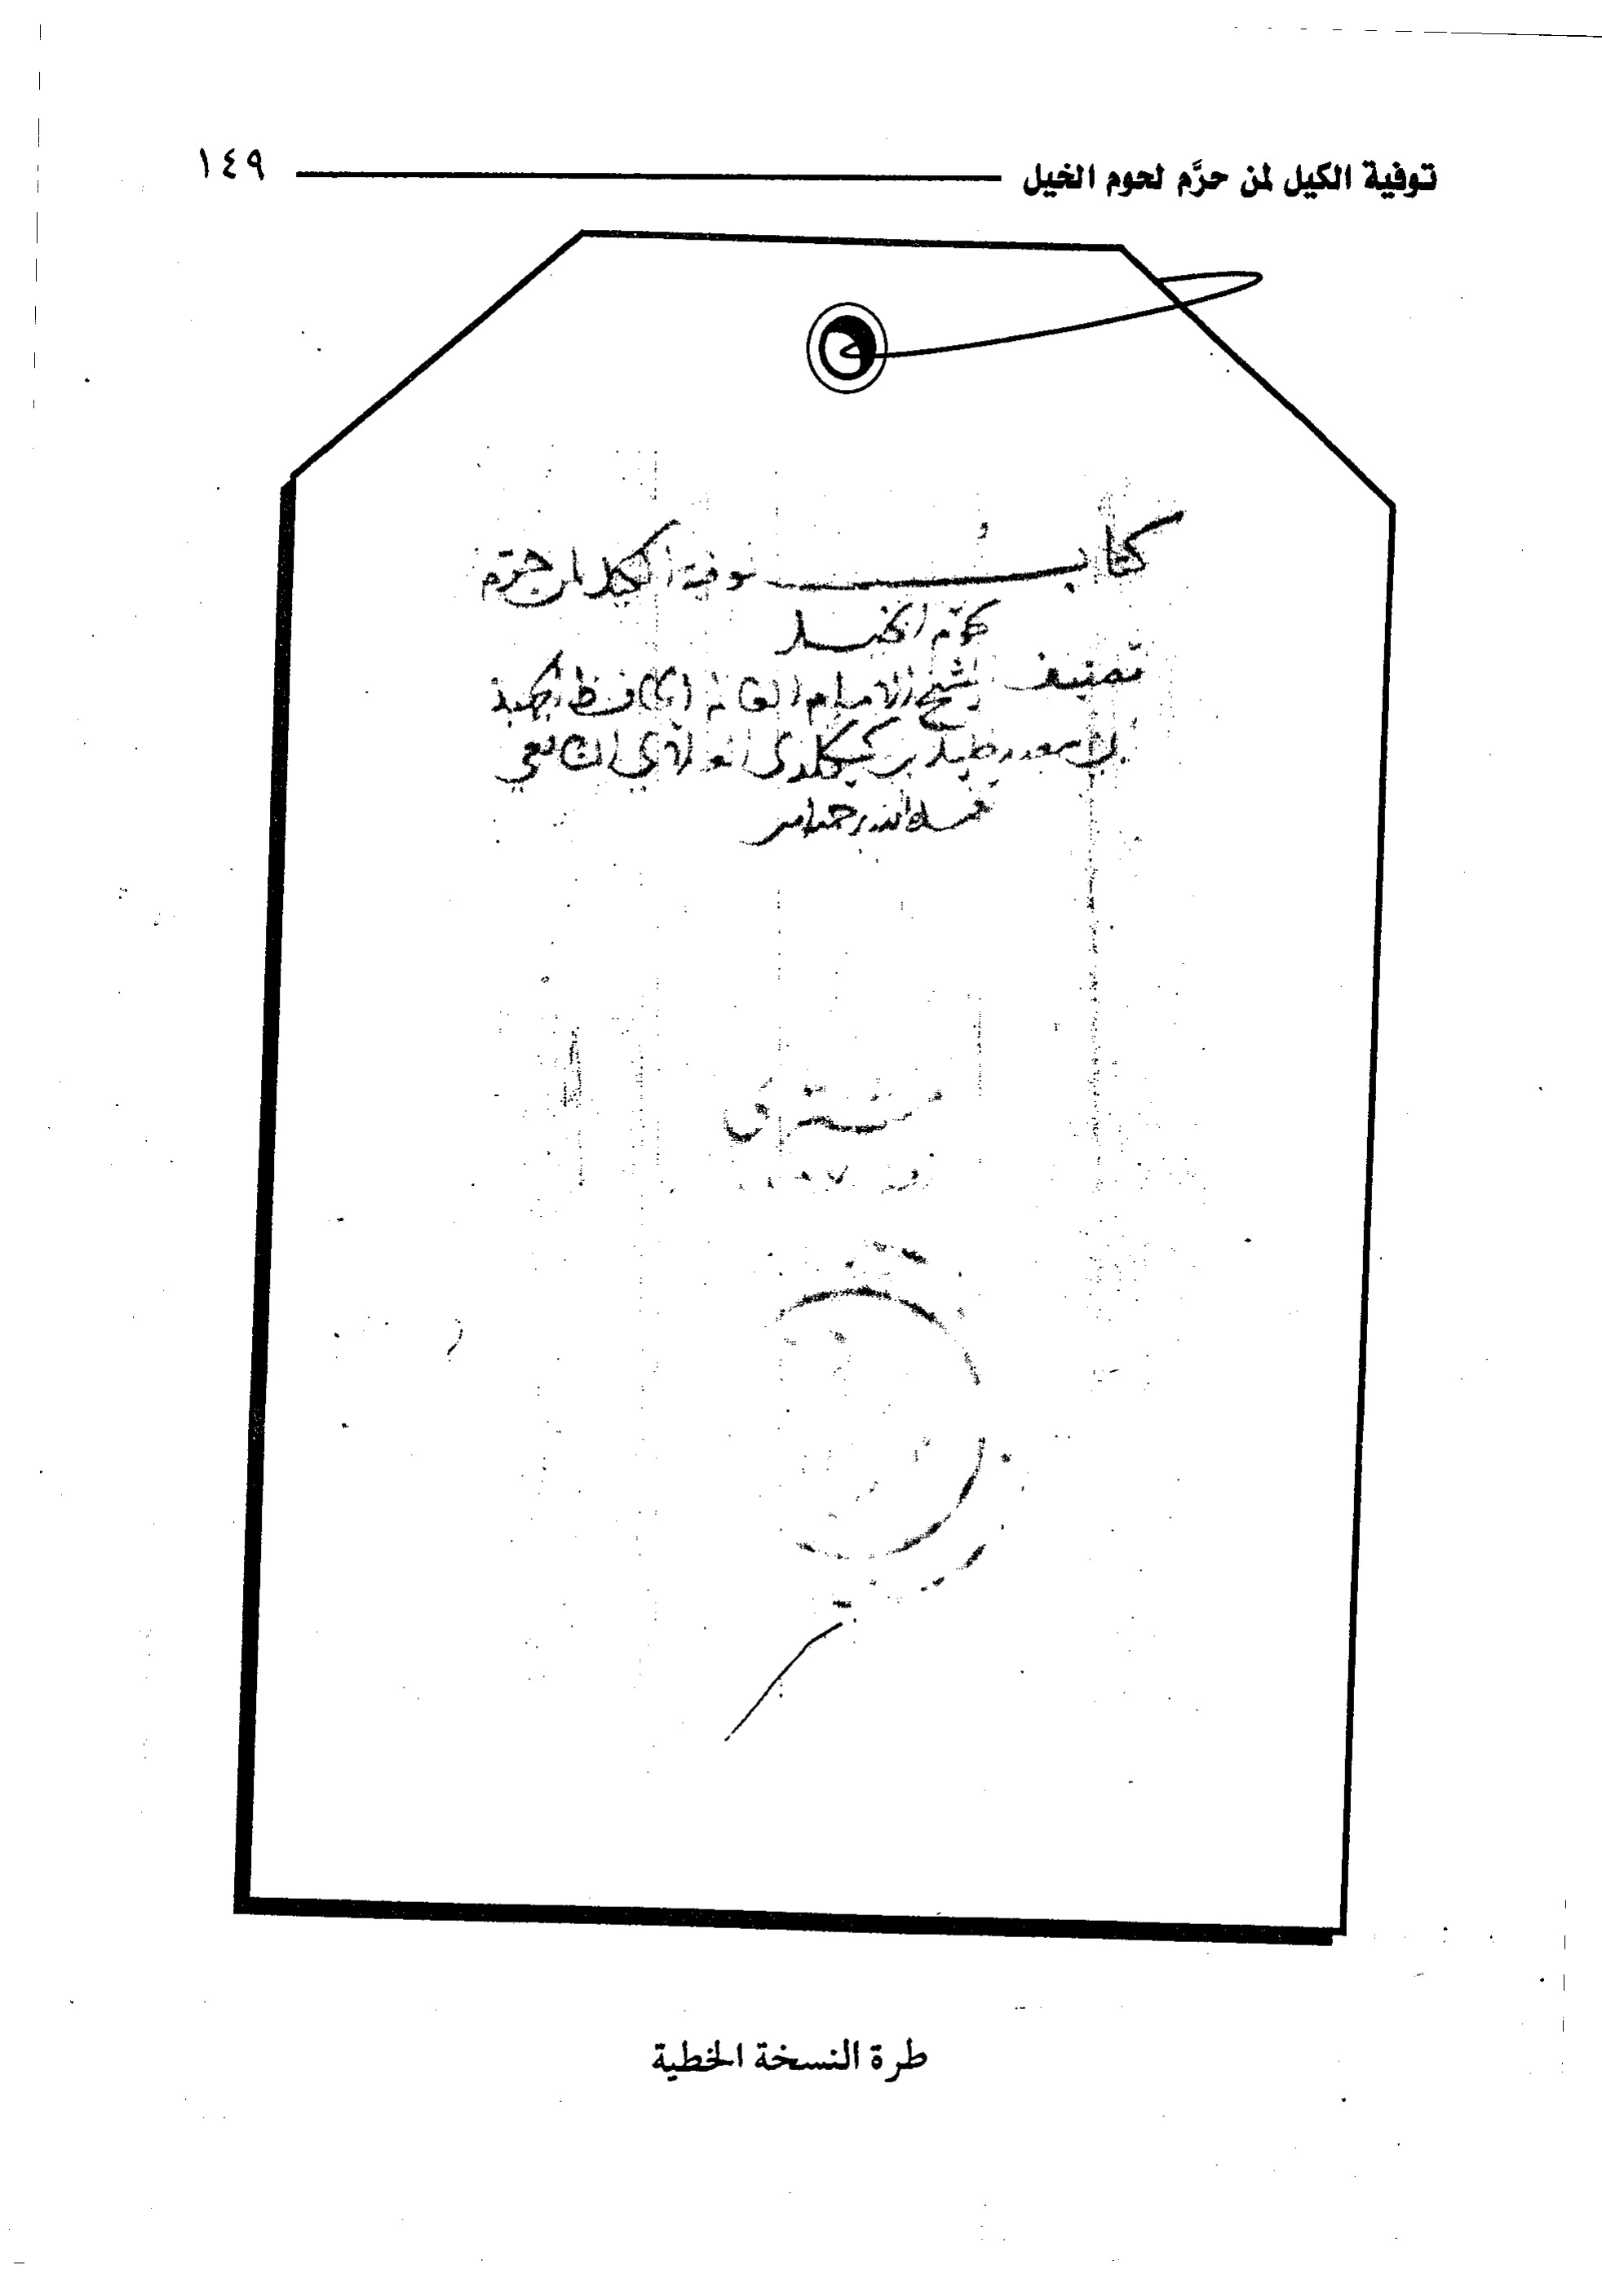 توفية الكيل لمن حرَّم لحوم الخيل ١٤٩
كتاب توفية الكيل لمن حرم
لحوم الخيل
تصنيف الشيخ الامام العالم الحافظ
ابي سعيد خليل بن كيكلدي العلائي الشافعي
تغمده الله برحمته امين
طرة النسخة الخطية